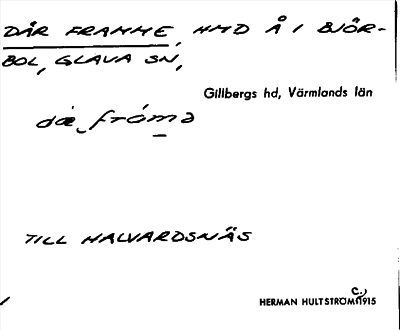 DÄR FRAMME, HMD Å I BJÖR-
BOL, GLAVA SN,
Gillbergs hd, Värmlands län
TILL HALVARDSNÄS
C.,
HERMAN HULTSTRÖM 1915